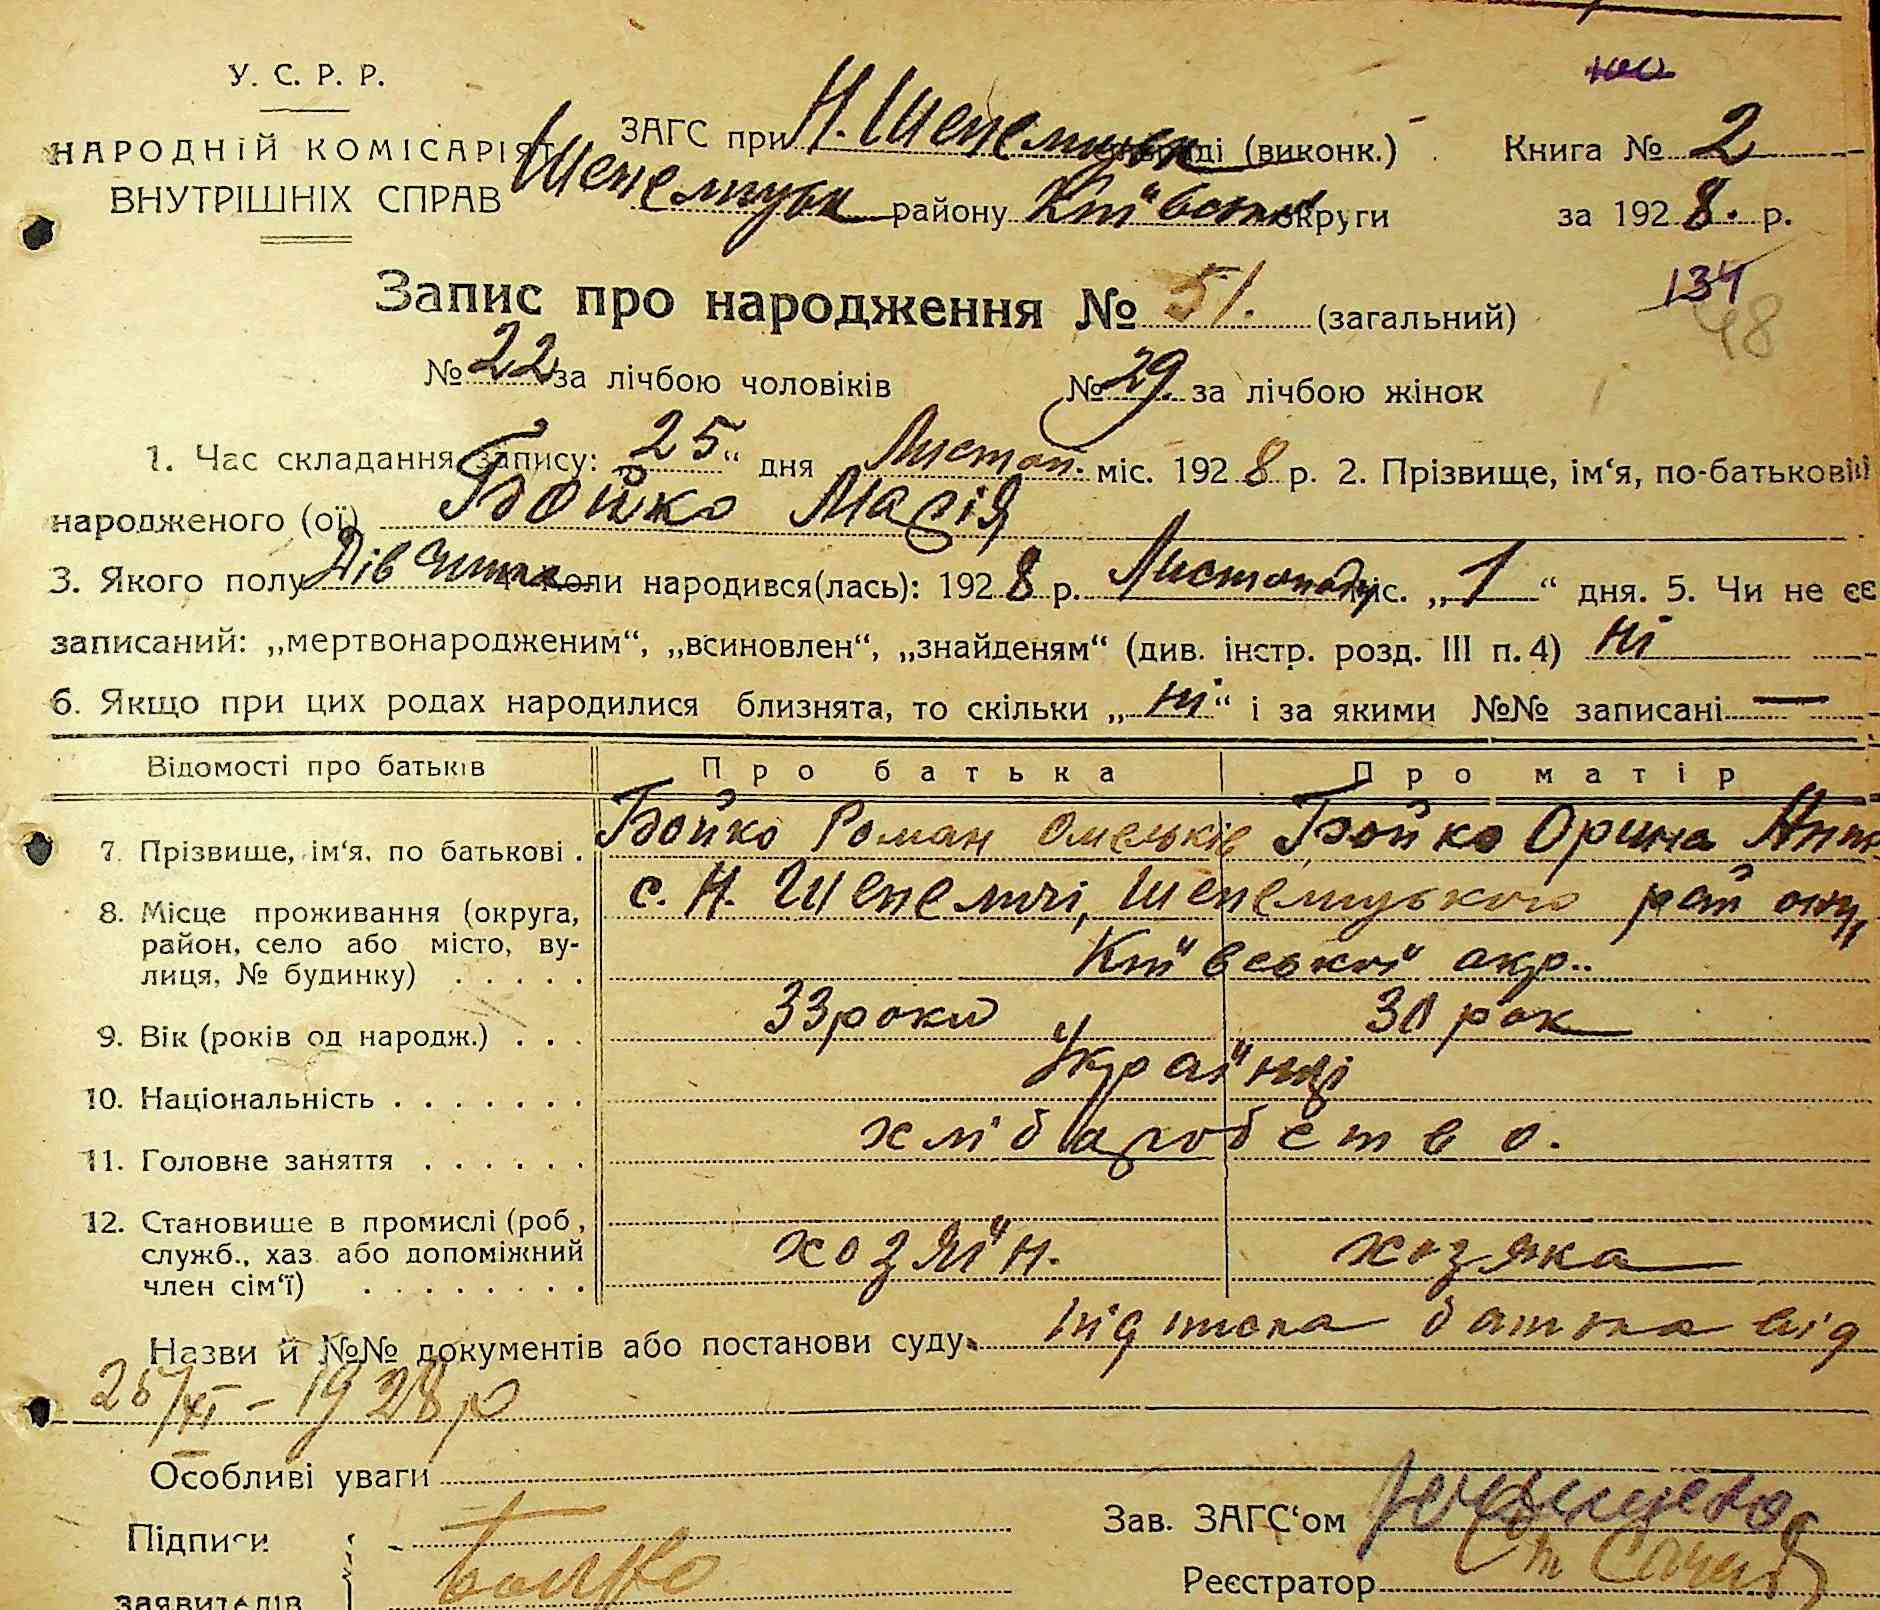 У. С. Р. Р.
НАРОДНІЙ КОМІСАРІЯТ
ВНУТРІШНІХ СПРАВ
ЗАГС при Н. Шепелицьк (виконк.)
Шепелицьк району Київськ округи
Книга № 2
за 1928. р.
134
48
Запис про народження № 51. (загальний)
№ 22 за лічбою чоловіків № 29. за лічбою жінок
1. Час складання запису: 25" дня Листоп. міс. 1928 р. 2. Прізвище, ім'я, по-батькові
народженого (ої) Бойко Марія
3. Якого полу Дівчина коли народився(лась): 1928 р. Листопаду міс. „1" дня. 5. Чи не єє
записаний: „мертвонародженим", „всиновлен", „знайденям" (див. інстр. розд. III п. 4) ні
6. Якщо при цих родах народилися близнята, то скільки „ні" і за якими №№ записані —
Відомості про батьків Про батька Про матір
7. Прізвище, ім'я, по батькові . Бойко Роман Омельків Бойко Орина
8. Місце проживання (округа, с. Н. Шепеличі, Шепелицького району,
район, село або місто, ву-
лиця, № будинку) . . . . . Київської окр..
9. Вік (років од народж.) . . . 33 роки 30 рок
10. Національність . . . . . . . Українці
11. Головне заняття . . . . . . хлібаробство.
12. Становище в промислі (роб,
служб., хаз. або допоміжний хозяїн. хозяка
член сім'ї) . . . . . . . .
Назви й №№ документів або постанови суду. підписка батька від
25/XI – 1928 р
Особливі уваги
Підписи
заявителів
Бойко
Зав. ЗАГС'ом
Реєстратор